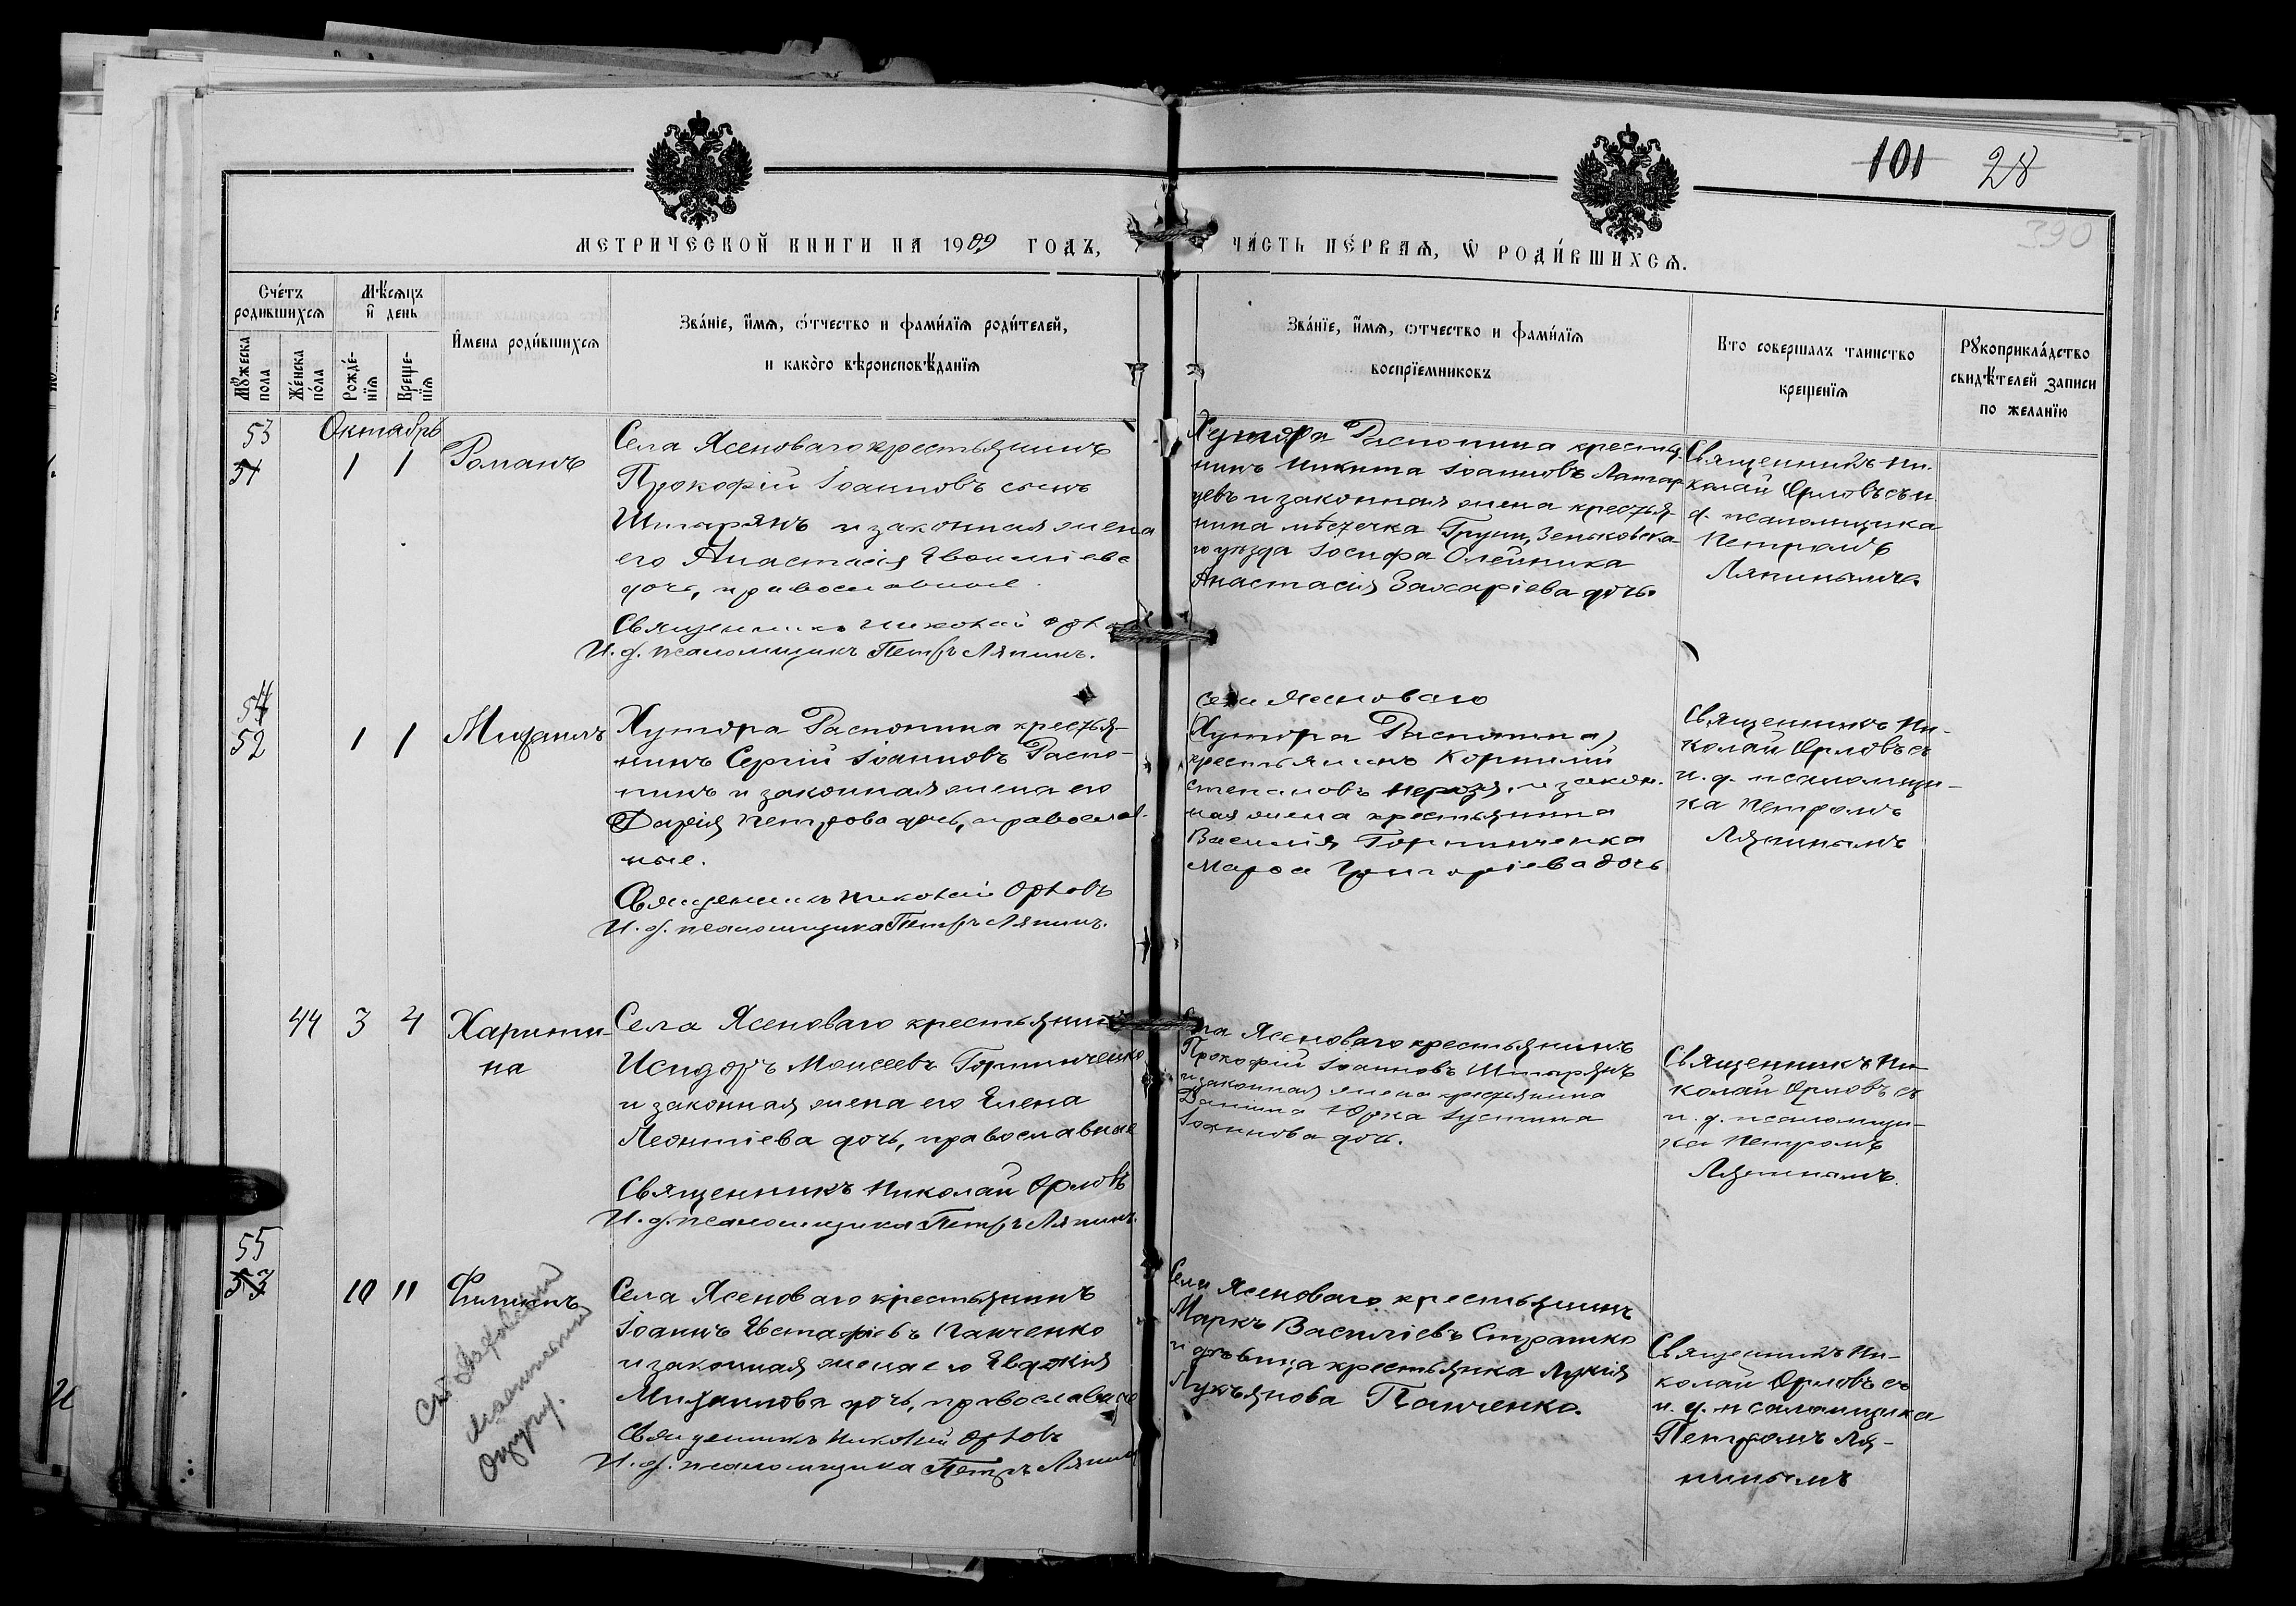 101 28
390
МЕТРИЧЕСКОЙ КНИГИ НА 1909 ГОДЪ,
ЧА́СТЬ ПЕ́РВАѦ, Ѡ РОДИ́ВШИХСѦ.
Сче́тъ родившихсѧ
Мꙋ́жеска пола
Же́нска по́ла
Мѣ́сѧцъ и҆ день
Рожде́-нїѧ
Креще-нїѧ
И҆мена роди́вшихсѧ
Зва́нїе, и҆́мѧ, о́тчество и фами́лїѧ роди́телей,
и како́го вѣроисповѣ́данїѧ
Зва́нїе, и҆́мѧ, ѻтчество и фами́лїѧ
воспрїе́мниковъ
Кто совершалъ таинство
креще́нїѧ
Рꙋкоприкла́дство
свидѣ́телей записи
по жела́нїю
Октябрь
53
51
1 1
Романъ
Села Ясеноваго крестьянинъ
Прокофій Іоанновъ сынъ
Штырянъ и законная жена
его Анастасія
дочь, православные.
Священникъ Николай Орл
И. д. псаломщика Петръ Ляпинъ.
Хутора Распопина крестья-
нинъ Никита Іоанновъ
и законная жена крестья-
нина мѣстечка Груни, Зеньковска-
го уѣзда Іосифа Олейника
Анастасія Захаріева дочь.
Священникъ Ни-
колай Орловъ съ и.
д. псаломщика
Петромъ
Ляпинымъ.
54
52
1 1
Михаилъ
Хутора Распопина крестья-
нинъ Сергій Іоанновъ Распо-
пинъ и законная жена его
Дарія Петрова дочь, православ-
ные.
Священникъ Николай Орловъ
И. д. псаломщика Петръ Ляпинъ.
села Ясеноваго
(Хутора Распопина)
крестьянинъ Корнилій
Степановъ и закон-
ная жена крестьянина
Василія Горпинченка
Марѳа Григоріева дочь
Священникъ Ни-
колай Орловъ съ
и. д. псаломщи-
ка Петромъ
Ляпинымъ
44 3 4
Харити-
на
Села Ясеноваго крестьянинъ
Исидоръ Моисеевъ Горпинченко
и законная жена его Елена
Леонтіева дочь, православные
Священникъ Николай Орловъ
И. д. псаломщика Петръ Ляпинъ.
Села Ясеноваго крестьянинъ
Прокофій Іоанновъ Штырянъ
и законная жена крестьянина
Даніила Юрка Іустина
Іоаннова дочь.
Священникъ Ни-
колай Орловъ съ
и. д. псаломщи-
ка Петромъ
Ляпинымъ.
55
53
10 11
Филиппъ
Села Ясеноваго крестьянинъ
Іоаннъ Евстафіевъ Панченко
и законная жена его Евдокія
Михаилова дочь, православные
Священникъ Николай Орловъ
И. д. псаломщика Петръ Ляпинъ
Села Ясеноваго крестьянинъ
Маркъ Василіевъ Страшко
и дѣвица крестьянка Лукія
Лукъянова Панченко.
Священникъ Ни-
колай Орловъ съ
и. д. псаломщика
Петромъ Ля-
пинымъ